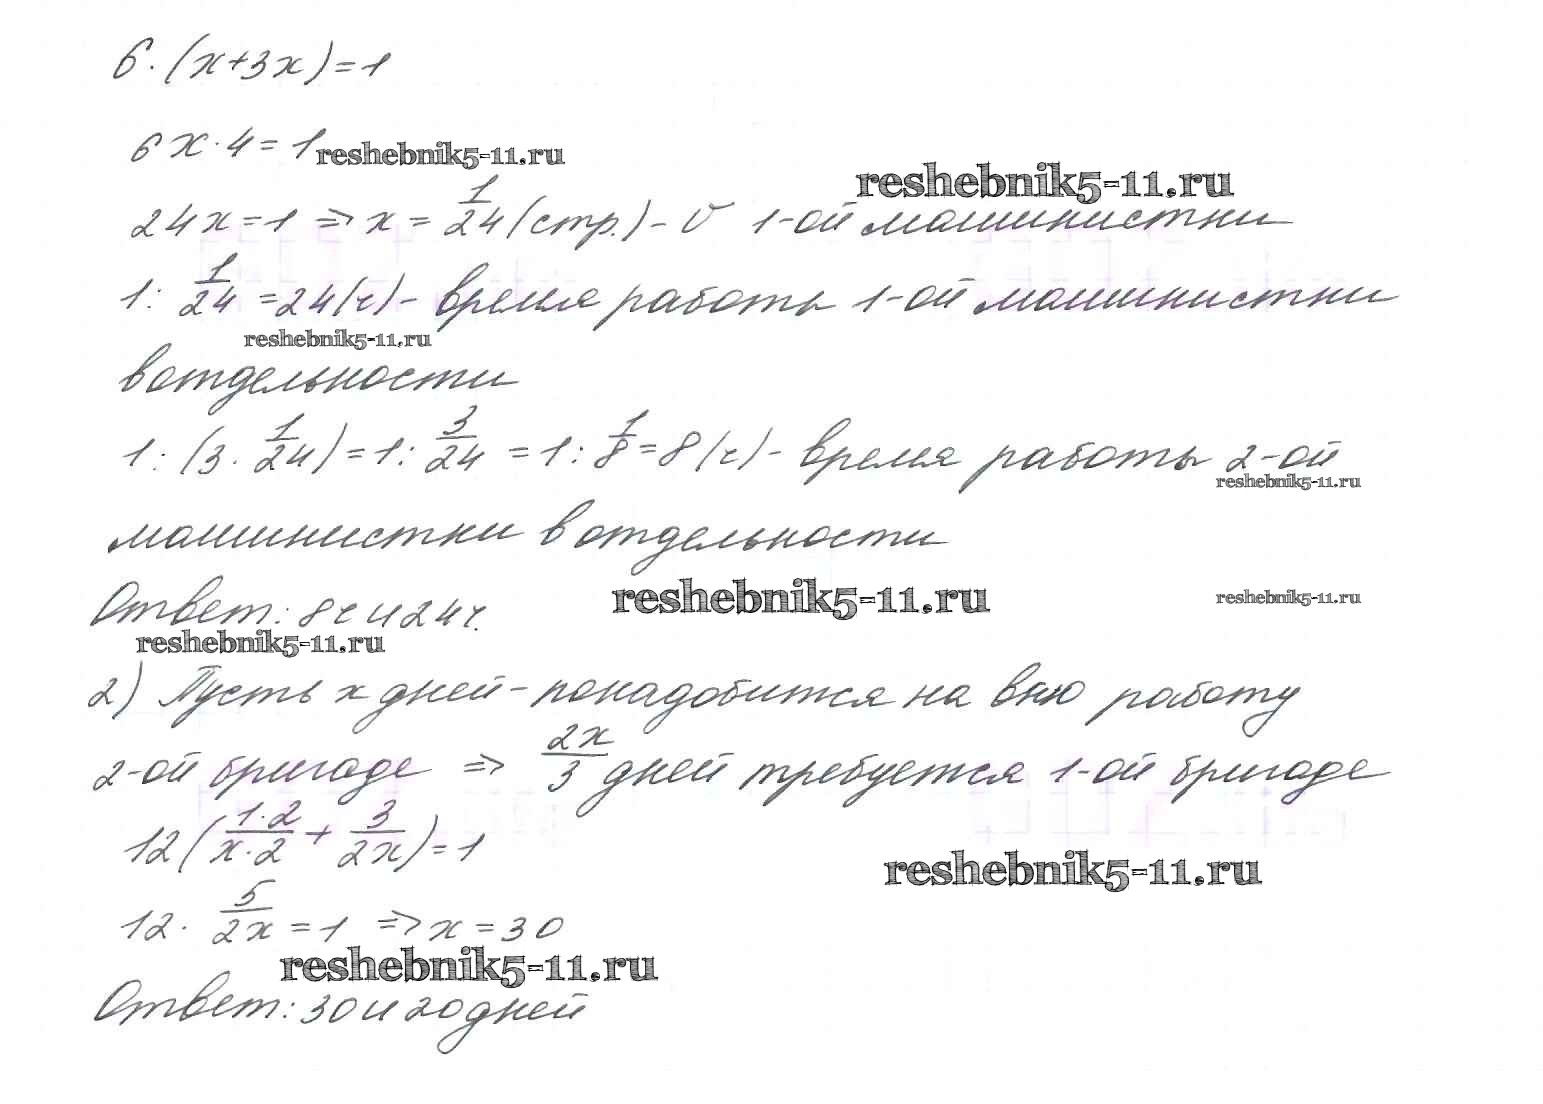 6·(x+3x)=1
6x·4=1
reshebnik5-11.ru
reshebnik5-11.ru
24x=1 ⇒ x = 1/24 (стр.) - v 1-ой машинистки
1 : 1/24 = 24(ч) - время работы 1-ой машинистки
reshebnik5-11.ru
в отдельности
1 : (3 · 1/24) = 1 : 3/24 = 1 : 1/8 = 8(ч) - время работы 2-ой
reshebnik5-11.ru
машинистки в отдельности
Ответ: 8ч и 24ч.
reshebnik5-11.ru
reshebnik5-11.ru
reshebnik5-11.ru
2) Пусть x дней - понадобится на всю работу
2-ой бригаде ⇒ 2x/3 дней требуется 1-ой бригаде
12(1·2/x·2 + 3/2x) = 1
reshebnik5-11.ru
12 · 5/2x = 1 ⇒ x = 30
reshebnik5-11.ru
Ответ: 30 и 20 дней